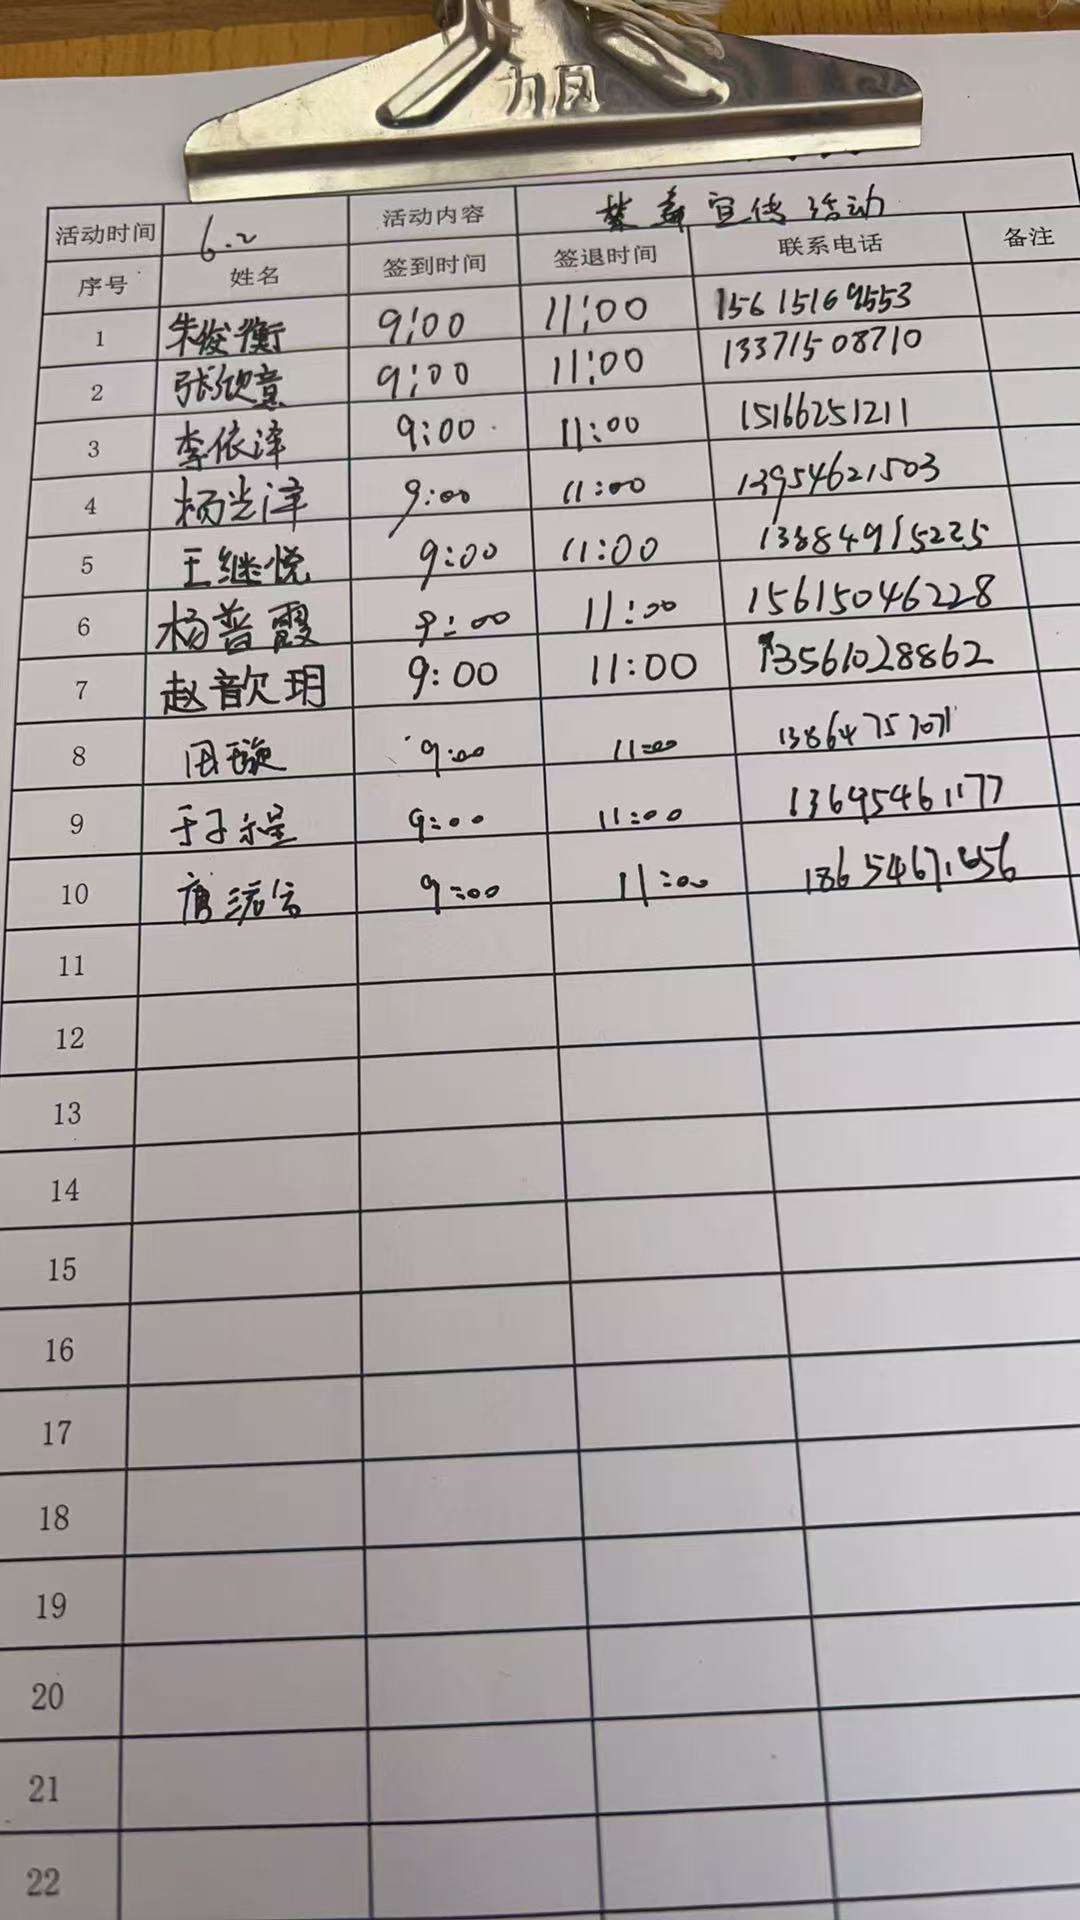 力风
活动时间 6.2 活动内容 禁毒宣传活动
序号 姓名 签到时间 签退时间 联系电话 备注
1 朱俊衡 9:00 11:00 15615169553
2 张欣意 9:00 11:00 13371508710
3 李依泽 9:00 11:00 15166251211
4 杨光泽 9:00 11:00 13954621503
5 王继悦 9:00 11:00 13384915225
6 杨普霞 9:00 11:00 15615046228
7 赵歆玥 9:00 11:00 13561028862
8 田璇 9:00 11:00 13864757071
9 于子程 9:00 11:00 13695461177
10 9:00 11:00
11
12
13
14
15
16
17
18
19
20
21
22